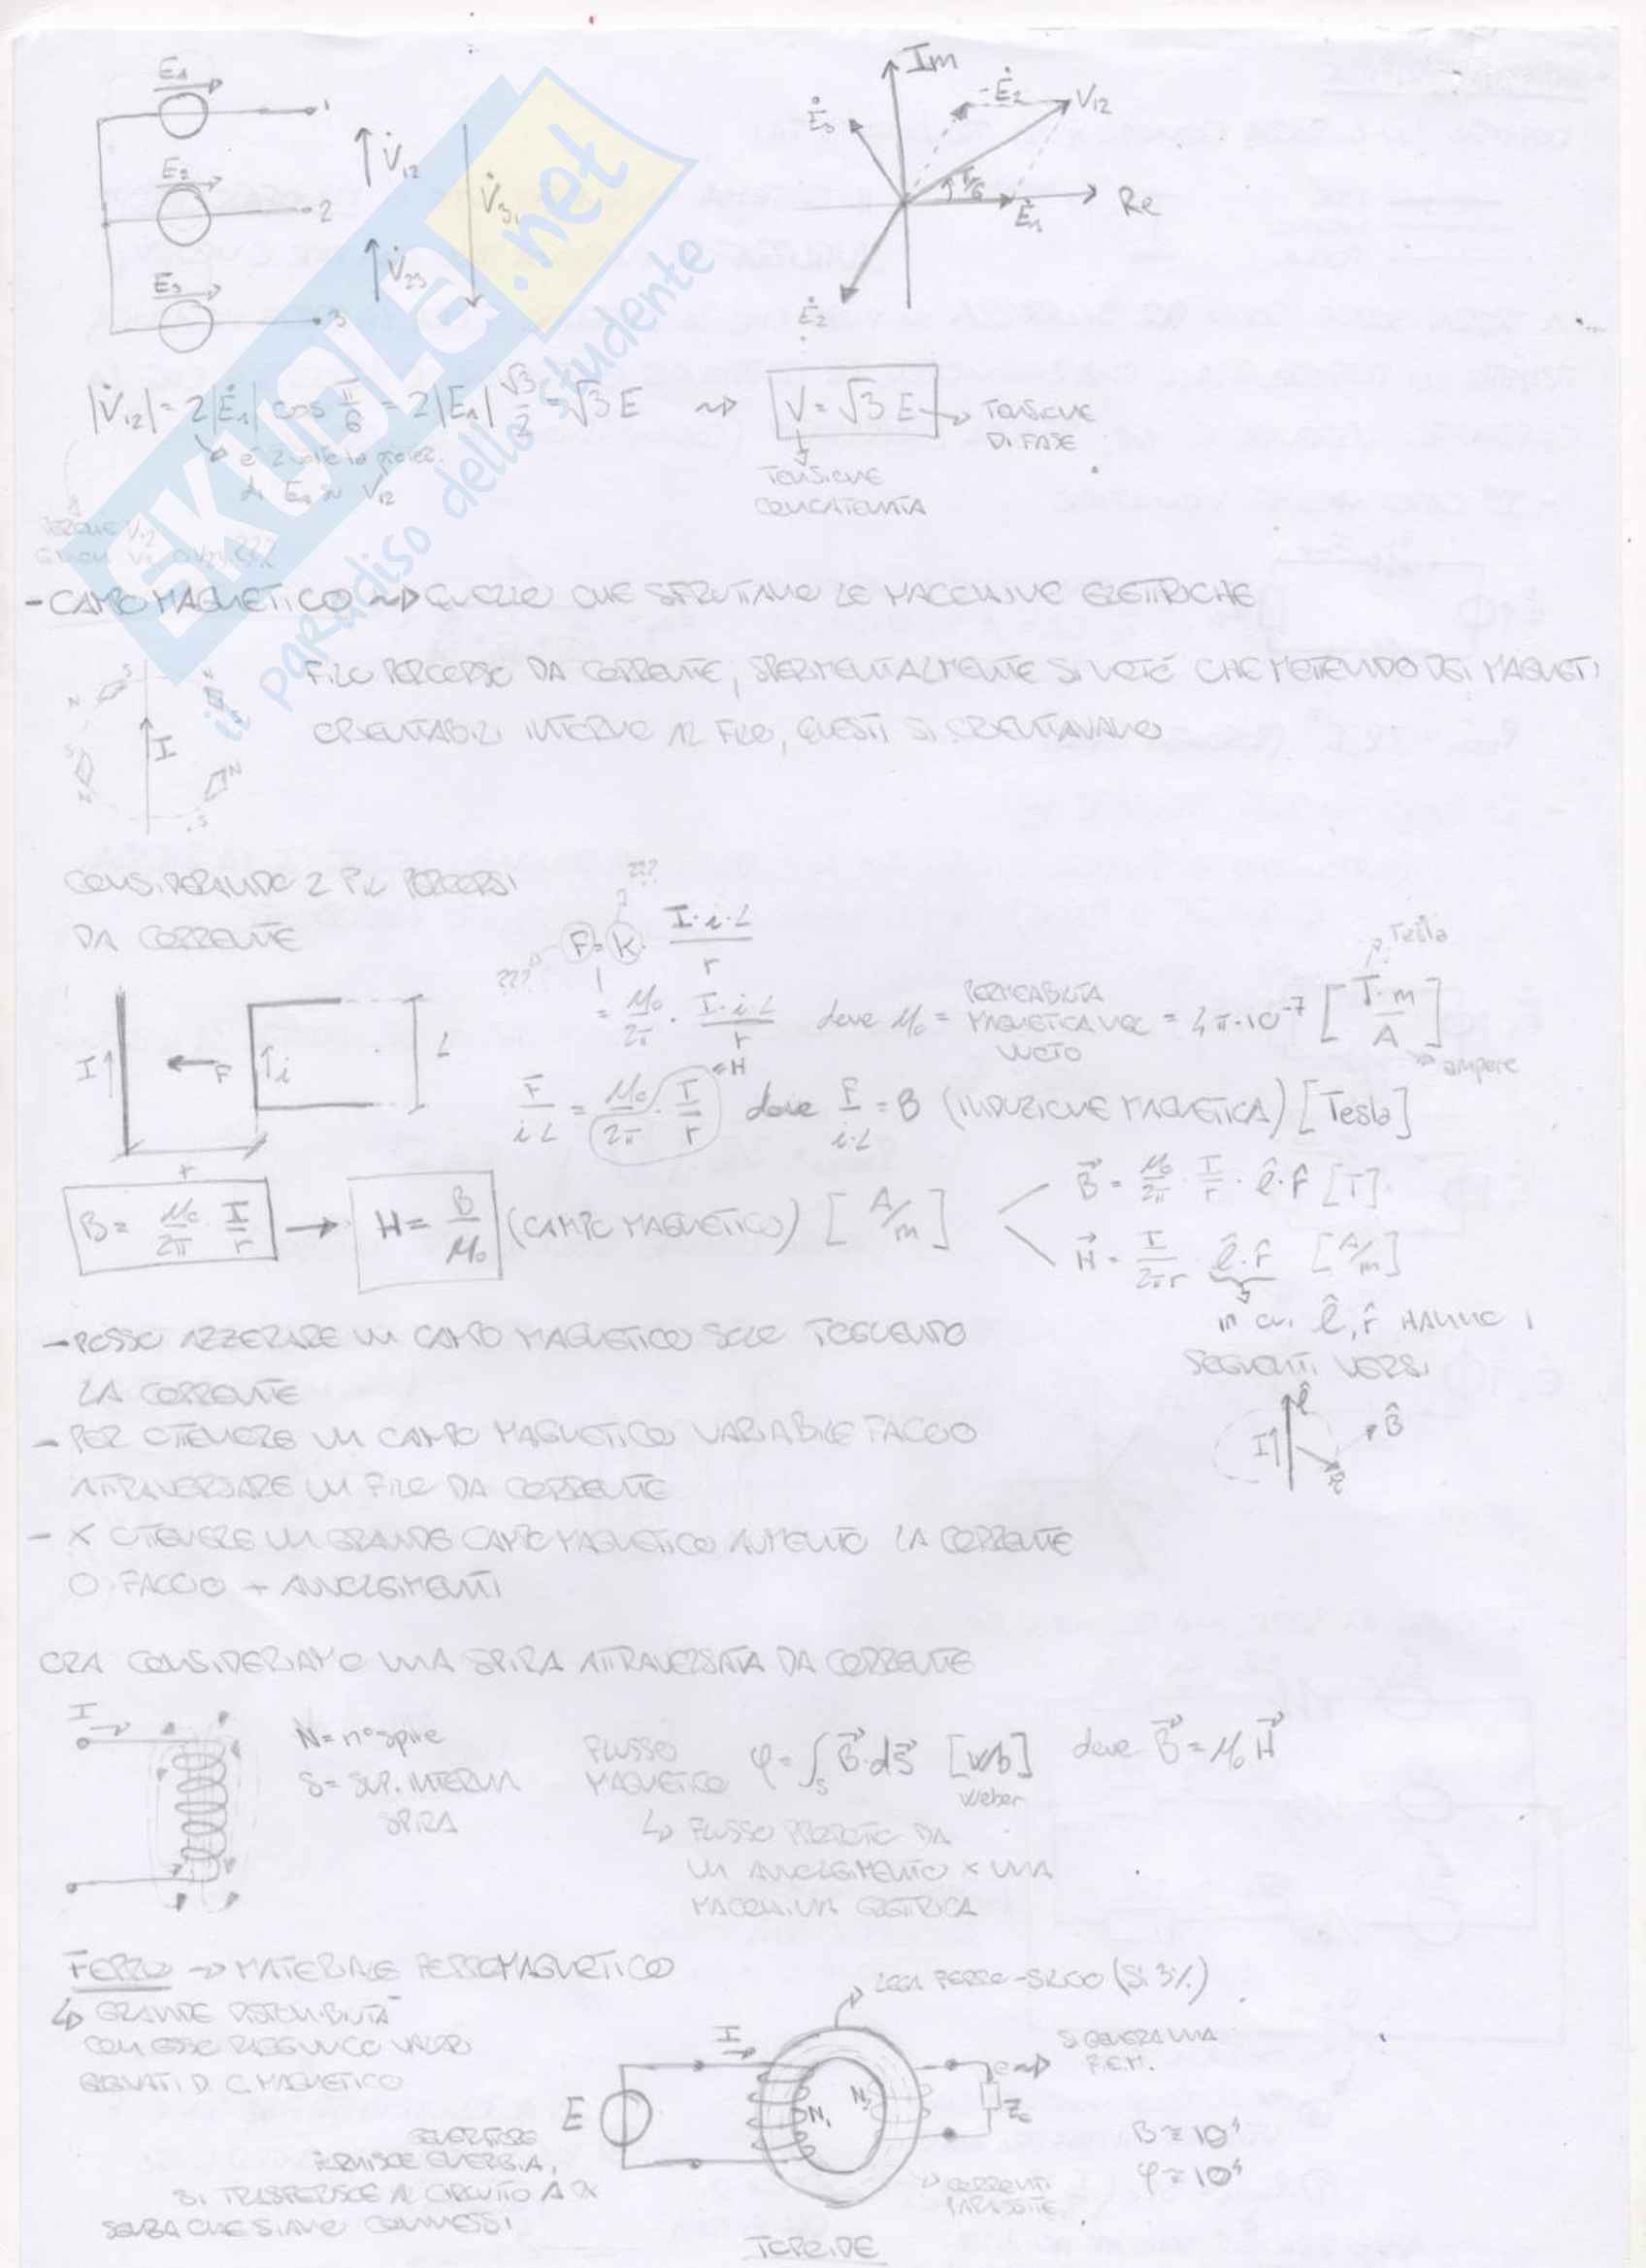 E1
1
E2
2
E3
3
V̇12
V̇23
V̇31
Im
Re
Ė3
-Ė2
V12
π/6
Ė1
Ė2
|V̇12| = 2|Ė1| cos π/6 = 2|E1| √3/2 = √3 E ~> V = √3 E → TENSIONE DI FASE
è 2 volte la proiez.
di E1 su V12
TENSIONE
CONCATENATA
SKUOLA.net
il paradiso dello studente
- CAMPO MAGNETICO ~> QUELLO CHE SFRUTTANO LE MACCHINE ELETTRICHE
FILO PERCORSO DA CORRENTE, SPERIMENTALMENTE SI NOTÒ CHE METTENDO DEI MAGNETI
ORIENTABILI INTORNO AL FILO, QUESTI SI ORIENTAVANO
I
CONSIDERANDO 2 FILI PERCORSI
DA CORRENTE
???
??? F = K · I·i·L / r
= μ0/2π · I·i·L / r dove μ0 = PERMEABILITÀ MAGNETICA NEL VUOTO = 4π·10⁻⁷ [T·m/A]
Tesla
ampere
I
F
i
L
r
F/i·L = μ0/2π · I/r ← H dove F/i·L = B (INDUZIONE MAGNETICA) [Tesla]
B = μ0/2π · I/r → H = B/μ0 (CAMPO MAGNETICO) [A/m]
B⃗ = μ0/2π · I/r · l̂·r̂ [T]
H⃗ = I/2πr · l̂·r̂ [A/m]
in cui l̂, r̂ HANNO I
SEGUENTI VERSI
I
l̂
B̂
r̂
- POSSO AZZERARE UN CAMPO MAGNETICO SOLO TOGLIENDO
LA CORRENTE
- PER OTTENERE UN CAMPO MAGNETICO VARIABILE FACCIO
ATTRAVERSARE UN FILO DA CORRENTE
- X OTTENERE UN GRANDE CAMPO MAGNETICO AUMENTO LA CORRENTE
O FACCIO + AVVOLGIMENTI
ORA CONSIDERIAMO UNA SPIRA ATTRAVERSATA DA CORRENTE
I
N = n° spire
S = SUP. INTERNA
SPIRA
FLUSSO
MAGNETICO φ = ∫S B⃗·dS⃗ [Wb] dove B⃗ = μ0 H⃗
Weber
↳ FLUSSO PRODOTTO DA
UN AVVOLGIMENTO X UNA
MACCHINA ELETTRICA
FERRO → MATERIALE FERROMAGNETICO
↳ GRANDE DISPONIBILITÀ
CON ESSO RAGGIUNGO VALORI
ELEVATI DI C. MAGNETICO
LEGA FERRO-SILICIO (Si 3%)
I
E
N1
N2
e ~> SI GENERA UNA
F.E.M.
Zc
B ≅ 10⁴
φ ≅ 10⁴
GENERATORE
FORNISCE ENERGIA,
SI TRASFERISCE AL CIRCUITO A DX
SENZA CHE SIANO CONNESSI
CORRENTI
PARASSITE
TOROIDE